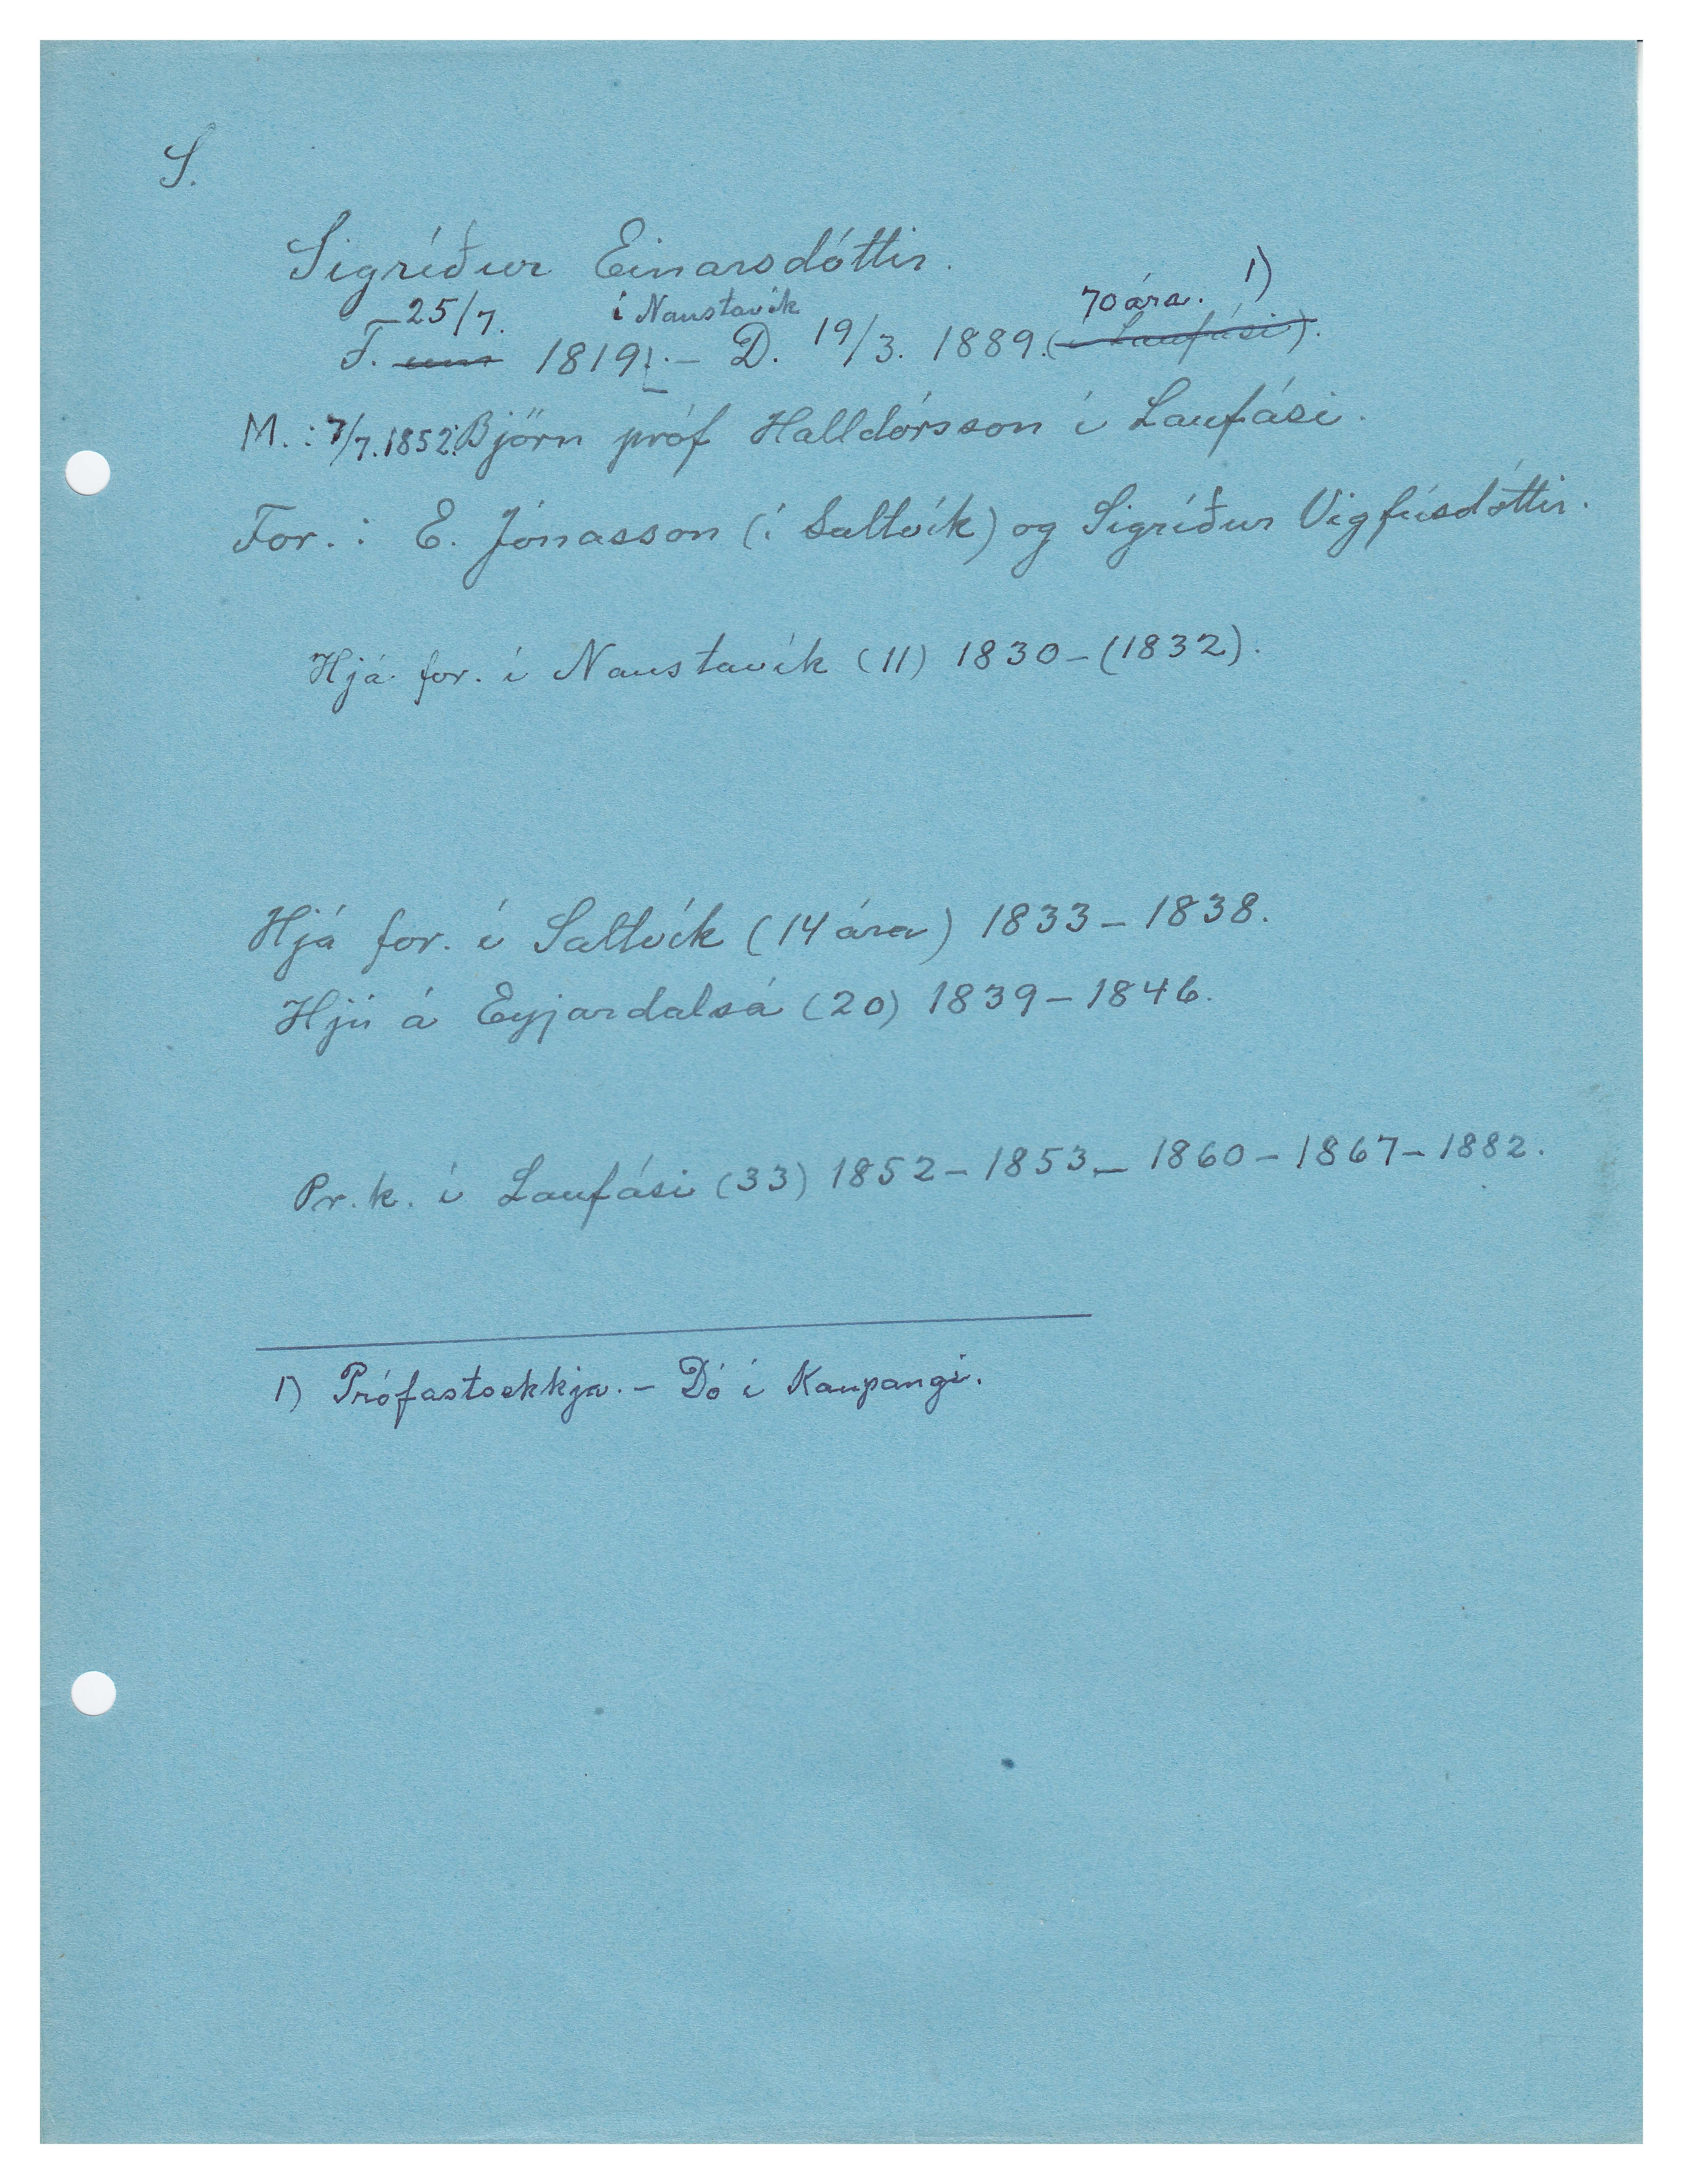 S.
Sigríður Einarsdóttir.
25/7. í Naustavík 70 ára. 1)
F. um 1819. – D. 19/3. 1889. (í Laufási).
M.: 7/7. 1852: Björn próf Halldórsson í Laufási.
For.: E. Jónasson (í Saltvík) og Sigríður Vigfúsdóttir.
Hjá for. í Naustavík (11) 1830 – (1832).
Hjá for. í Saltvík (14 ára) 1833 – 1838.
Hjú á Eyjardalsá (20) 1839 – 1846.
Pr.k. í Laufási (33) 1852 – 1853 – 1860 – 1867 – 1882.
1) Prófastsekkja. – Dó í Kaupangi.